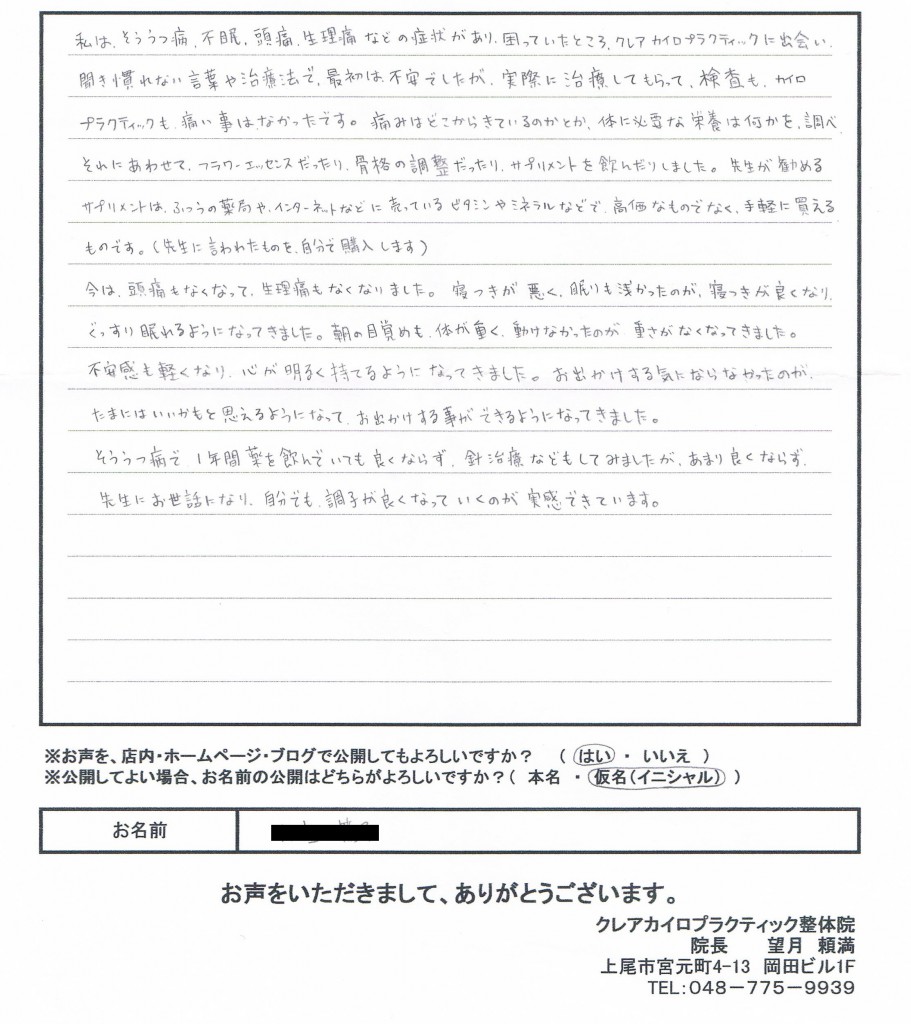 私は、そううつ病、不眠、頭痛、生理痛などの症状があり、困っていたところ、クレアカイロプラクティックに出会い、
聞き慣れない言葉や治療法で、最初は不安でしたが、実際に治療してもらって、検査も、カイロ
プラクティックも、痛い事はなかったです。痛みはどこからきているのかとか、体に必要な栄養は何かを、調べ
それにあわせて、フラワーエッセンスだったり、骨格の調整だったり、サプリメントを飲んだりしました。先生が勧める
サプリメントは、ふつうの薬局や、インターネットなどに売っているビタミンやミネラルなどで、高価なものでなく、手軽に買える
ものです。(先生に言われたものを、自分で購入します)
今は、頭痛もなくなって、生理痛もなくなりました。寝つきが悪く、眠りも浅かったのが、寝つきが良くなり、
ぐっすり眠れるようになってきました。朝の目覚めも、体が重く、動けなかったのが重さがなくなってきました。
不安感も軽くなり、心が明るく持てるようになってきました。お出かけする気にならなかったのが、
たまにはいいかもと思えるようになって、お出かけする事ができるようになってきました。
そううつ病で1年間薬を飲んでいても良くならず、針治療などもしてみましたが、あまり良くならず、
先生にお世話になり、自分でも、調子が良くなっていくのが実感できています。
※お声を、店内・ホームページ・ブログで公開してもよろしいですか? (はい・いいえ)
※公開してよい場合、お名前の公開はどちらがよろしいですか?(本名・仮名(イニシャル))
お名前
お声をいただきまして、ありがとうございます。
クレアカイロプラクティック整体院
院長 望月 頼満
上尾市宮元町4-13 岡田ビル1F
TEL:048-775-9939